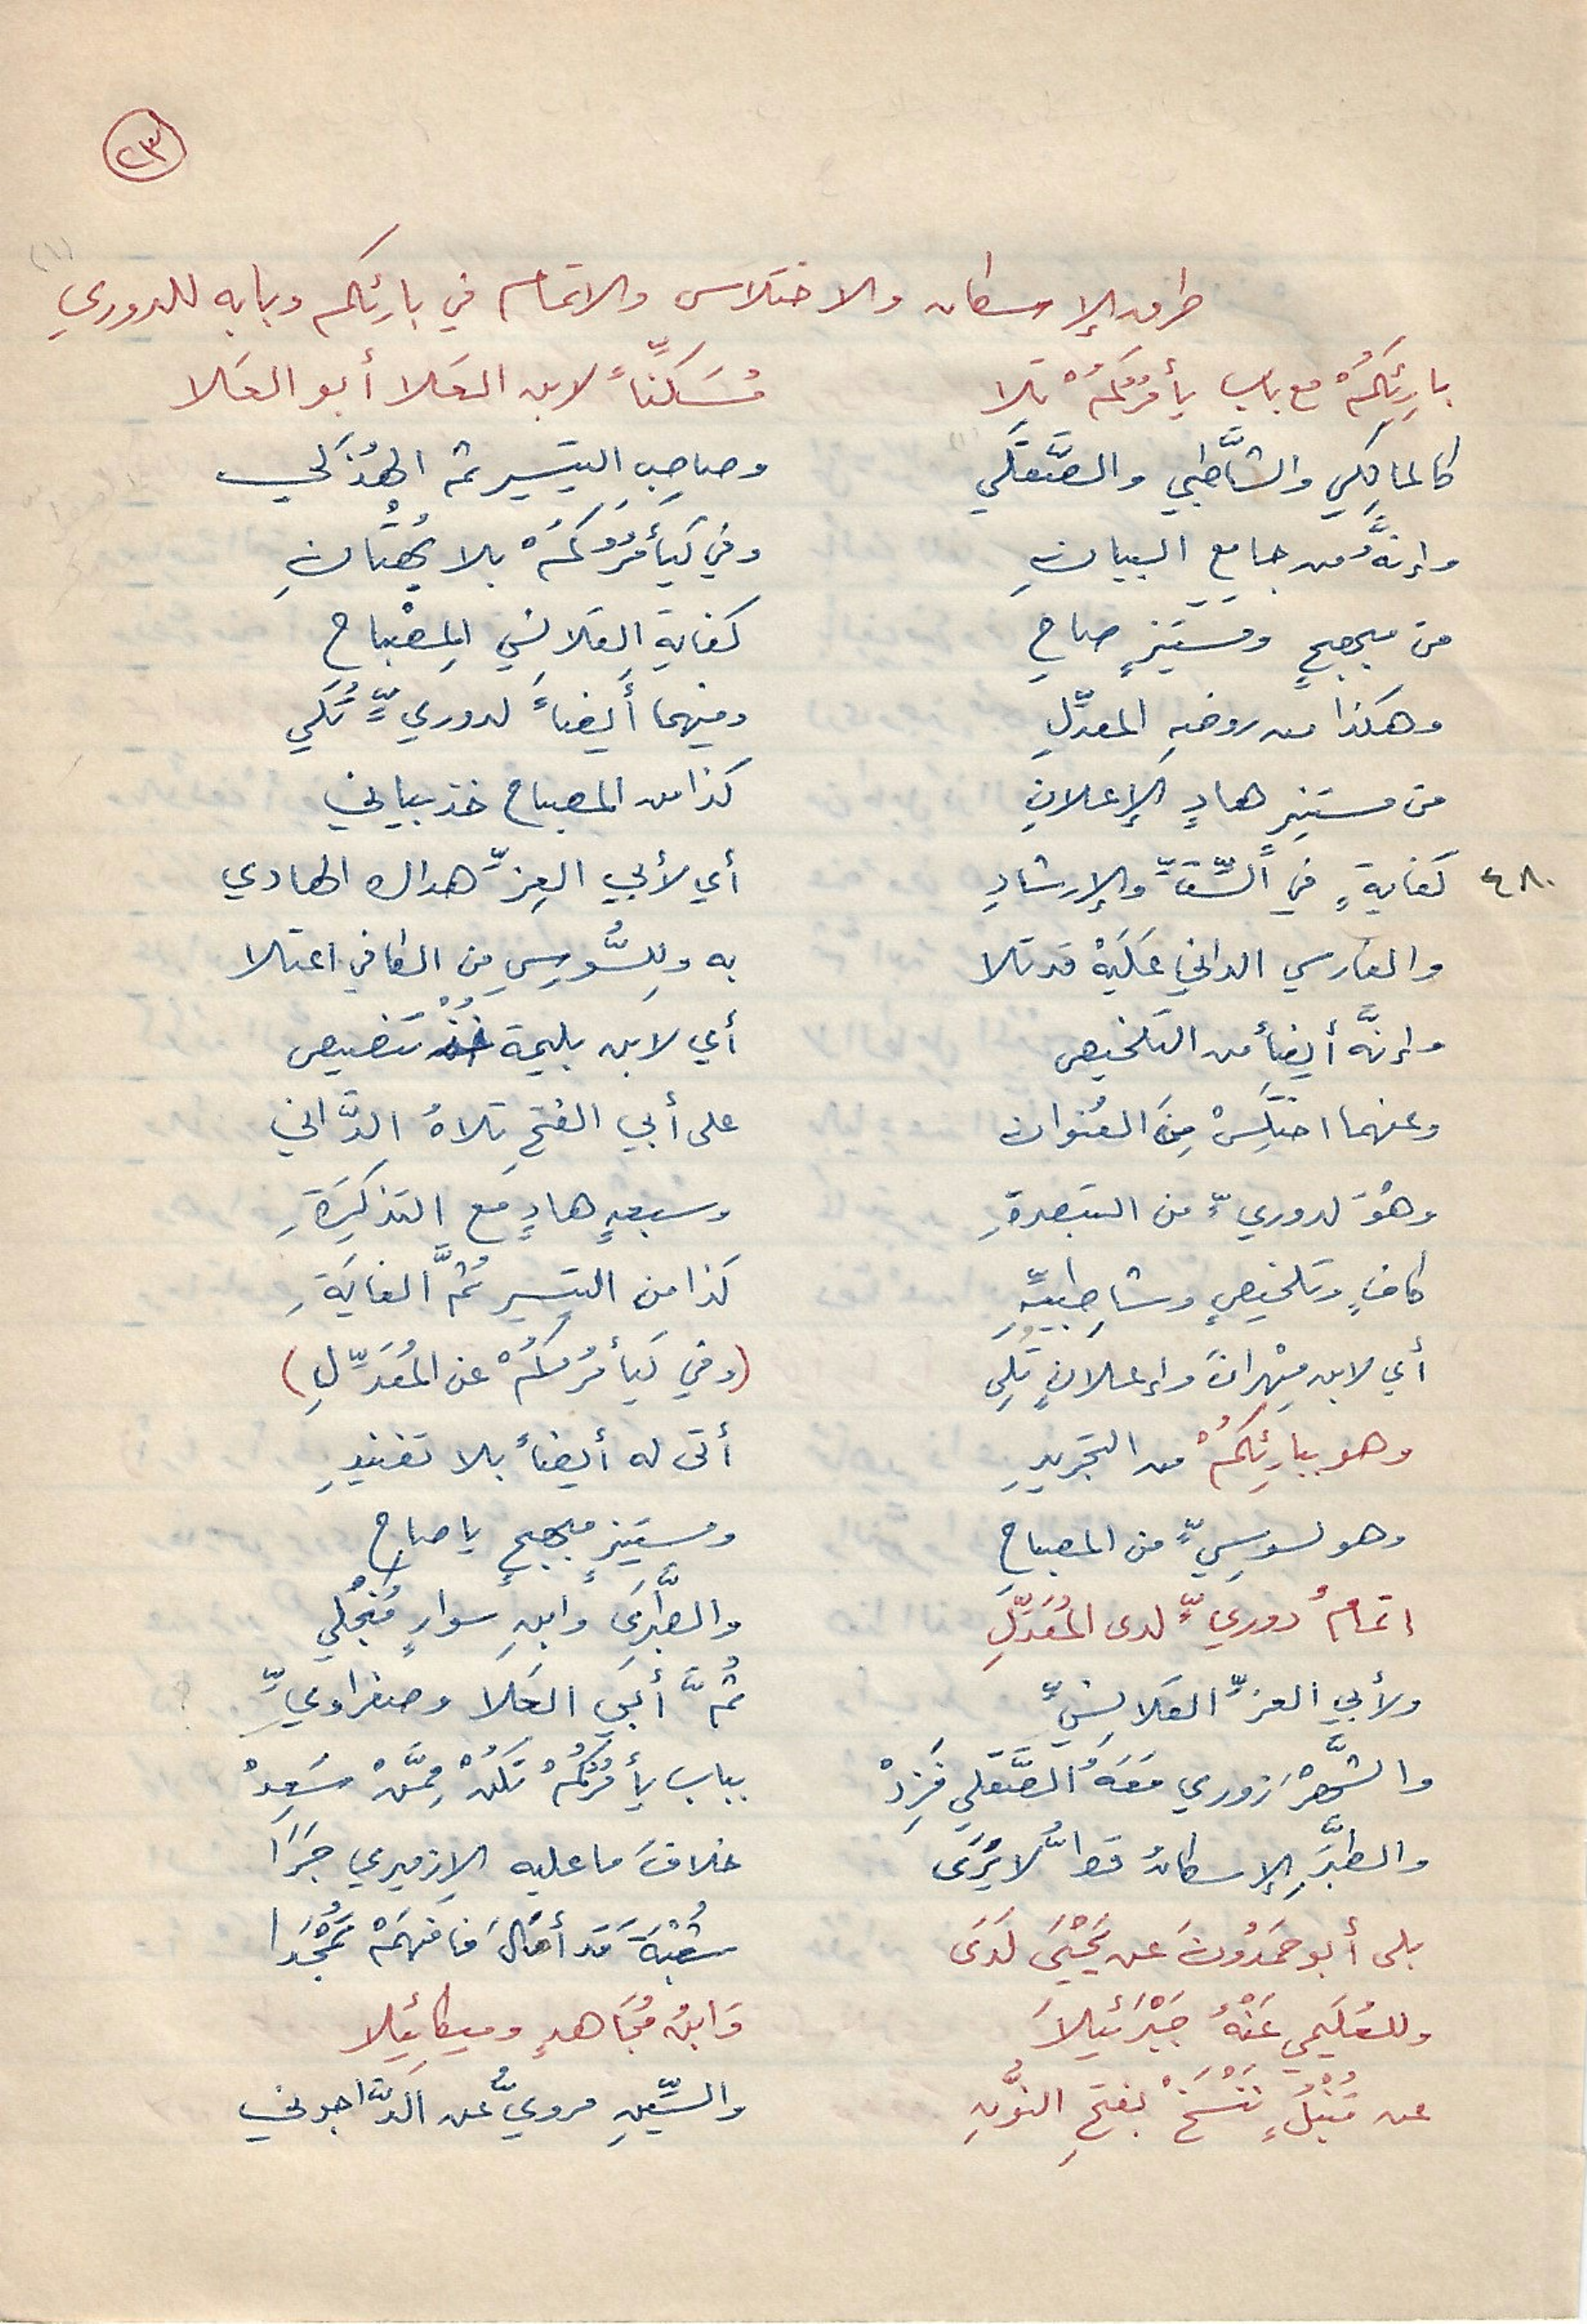 ٢٣
طرق الإسكان والاختلاس والاتمام في بارئكم وبابه للدوري (١)
بارِئِكُمْ مع باب يأمُرْكُمْ تلا مُسَكِّنًا لابن العَلا أبو العَلا
كالمالِكِي والشَّاطِبي والصَّقَلِّي وصاحِبِ التيسير ثم الهُذَلي
وإنَّهُ من جامعِ البيانِ وفي كَيَأْمُرْكُمْ بلا بُهْتانِ
من مبهجٍ ومستَنِيرٍ صاحِ كفايةِ القَلانسي المِصْباحِ
وهكذا من روضةِ المعدِّلِ ومنهما أيضاً لدوريٍّ تُلي
من مستنِيرٍ هادٍ الإعلانِ كذا من المصباح خذ بياني
٤٨٠ كفايةٍ في السِّتِّ والإرشادِ أي لأبي العِزِّ هداك الهادي
والفارسي الداني عَلَيْهِ قد تلا به ولِلسُّوسِي مِن الكافي اعتلا
وإنَّه أيضاً من التلخيص أي لابن بليمة خُذْ تنصيص
وعنهما اختَلِسْ مِنَ العُنوان على أبي الفتحِ تلاهُ الدَّاني
وهْوَ لدوريٍّ من التبصرةِ وسبعةٍ هادٍ مع التذكِرَةِ
كافٍ وتلخيصٍ وشاطِبيَّةِ كذا من التيسير ثُمَّ الغايَةِ
أي لابن مِهْرانَ وإعلانٍ تُلِي (وفي كَيَأْمُرْكُمْ عن المُعَدِّلِ)
وهو ببارِئِكُمْ من التجريدِ أتى له أيضاً بلا تفنيدِ
وهو لسوسِيٍّ من المصباحِ ومستنِيرٍ مبهجٍ يا صاحِ
اتمامُ دوريٍّ لدى المُعَدِّلِ والطَّبَرِي وابنِ سوارٍ مُنْجَلي
ولأبي العزِّ القَلانِسيِّ ثُمَّ أبي العَلا وصفراويِّ
والشَّهْرَزوري مَعَهُ الصَّقَلي فَزِدْ بباب يأمُرْكُمْ تَكُنْ مِمَّنْ سَعِدْ
والطَّبَرِي الإسكانُ قطُّ لا يُرَى خلافَ ما عليه الإزميري جَرَا
بلى أبو حَمْدُونَ عن يَحْيَى لَدَى شُعْبَةَ قد أمَالَ فافهَمْ تُمْجَدَا
وللعُلَيمي عَنْهُ جَبْرَئيلاَ وَابنُ مُجَاهدٍ وميكائيلا
عن قُنْبُلٍ نَنْسَخْ بفتحِ النُّونِ والسِّينِ مرويٌّ عن الدَّاجوني